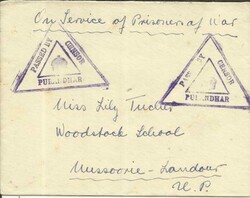 On Service of Prisoners of War
PASSED BY CENSOR
PURANDHAR
PASSED BY CENSOR
PURANDHAR
Miss Lily Tucher
Woodstock School
Mussoorie-Landour
U.P.